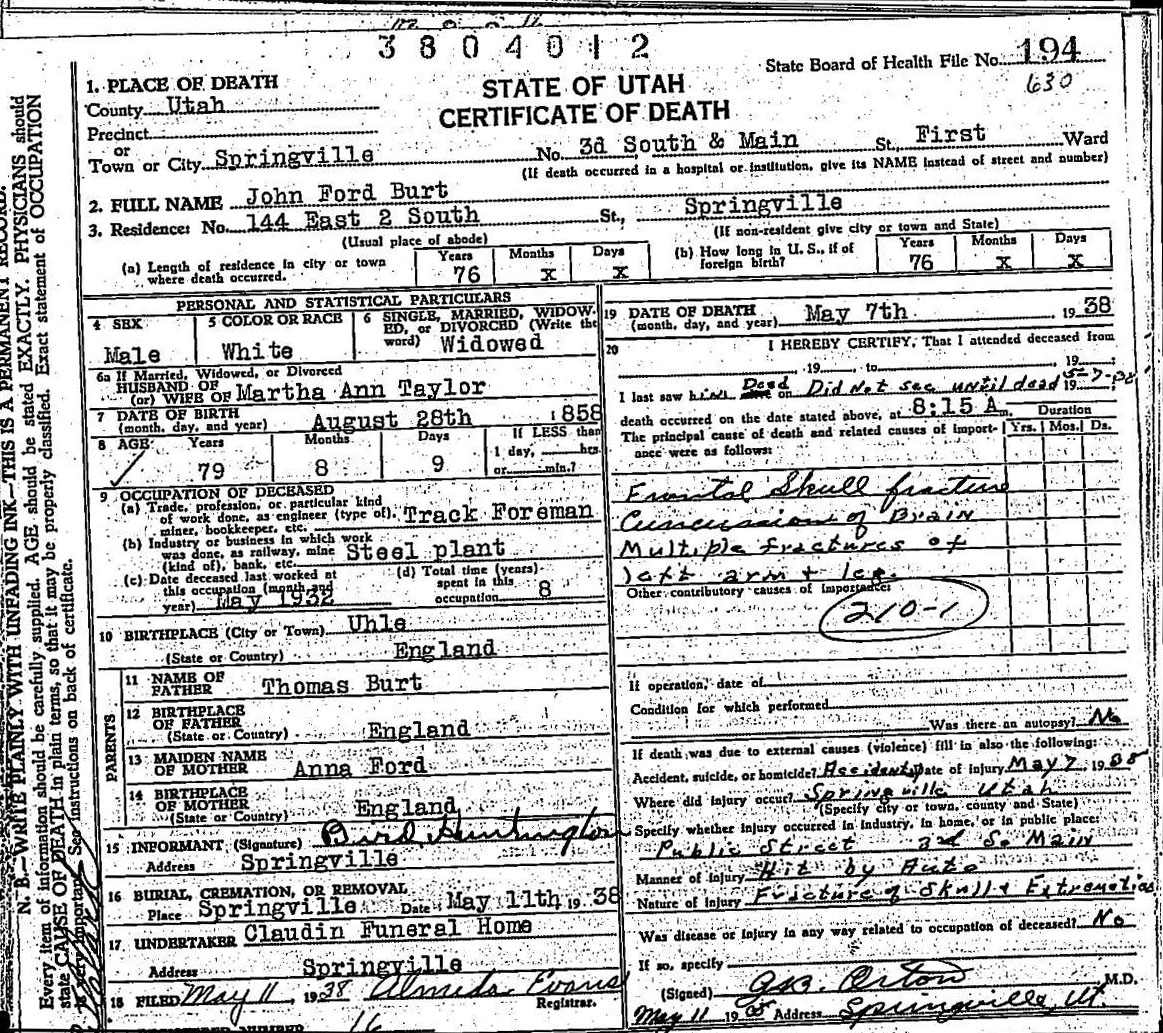 3804012
State Board of Health File No. 194
630
STATE OF UTAH
CERTIFICATE OF DEATH
1. PLACE OF DEATH
County Utah
Precinct
or
Town or City Springville No. 3d South & Main St., First Ward
(If death occurred in a hospital or institution, give its NAME instead of street and number)
2. FULL NAME John Ford Burt
3. Residence: No. 144 East 2 South St., Springville
(Usual place of abode) (If non-resident give city or town and State)
(a) Length of residence in city or town where death occurred. Years 76 Months x Days x
(b) How long in U. S., if of foreign birth? Years 76 Months x Days x
PERSONAL AND STATISTICAL PARTICULARS
4 SEX Male
5 COLOR OR RACE White
6 SINGLE, MARRIED, WIDOWED, or DIVORCED (Write the word) Widowed
6a If Married, Widowed, or Divorced
HUSBAND OF
(or) WIFE OF Martha Ann Taylor
7 DATE OF BIRTH
(month, day, and year) August 28th 1858
8 AGE: Years 79 Months 8 Days 9 If LESS than 1 day, hrs. or min.?
9 OCCUPATION OF DECEASED
(a) Trade, profession, or particular kind of work done, as engineer (type of), miner, bookkeeper, etc. Track Foreman
(b) Industry or business in which work was done, as railway, mine (kind of), bank, etc. Steel plant
(c) Date deceased last worked at this occupation (month and year) May 1932
(d) Total time (years) spent in this occupation 8
10 BIRTHPLACE (City or Town) Uhle
(State or Country) England
PARENTS
11 NAME OF FATHER Thomas Burt
12 BIRTHPLACE OF FATHER
(State or Country) England
13 MAIDEN NAME OF MOTHER Anna Ford
14 BIRTHPLACE OF MOTHER
(State or Country) England
15 INFORMANT (Signature) Bird Huntington
Address Springville
16 BURIAL, CREMATION, OR REMOVAL
Place Springville Date May 11th 1938
17 UNDERTAKER Claudin Funeral Home
Address Springville
18 FILED May 11, 1938 Almeda Evans
Registrar.
16
19 DATE OF DEATH
(month, day, and year) May 7th 1938
20 I HEREBY CERTIFY, That I attended deceased from
19 , to 19 ;
I last saw him Dead on Did Not see until dead 19 5-7-38
death occurred on the date stated above, at 8:15 A m.
Duration
Yrs. Mos. Ds.
The principal cause of death and related causes of importance were as follows:
Frontal Skull fracture
Concussion of Brain
Multiple fractures of
left arm + leg.
Other contributory causes of importance:
210-1
If operation, date of
Condition for which performed
Was there an autopsy? No
If death was due to external causes (violence) fill in also the following:
Accident, suicide, or homicide? Accident Date of injury May 7 1938
Where did injury occur? Springville Utah
(Specify city or town, county and State)
Specify whether injury occurred in industry, in home, or in public place:
Public Street 3rd So Main
Manner of injury Hit by Auto
Nature of injury Fracture of Skull + Extremities
Was disease or injury in any way related to occupation of deceased? No
If so, specify
(Signed) Orton M.D.
May 11 19 Address Springville, Ut.
N. B.—WRITE PLAINLY WITH UNFADING INK—THIS IS A PERMANENT RECORD.
Every item of information should be carefully supplied. AGE should be stated EXACTLY. PHYSICIANS should
state CAUSE OF DEATH in plain terms, so that it may be properly classified. Exact statement of OCCUPATION
is very important. See instructions on back of certificate.